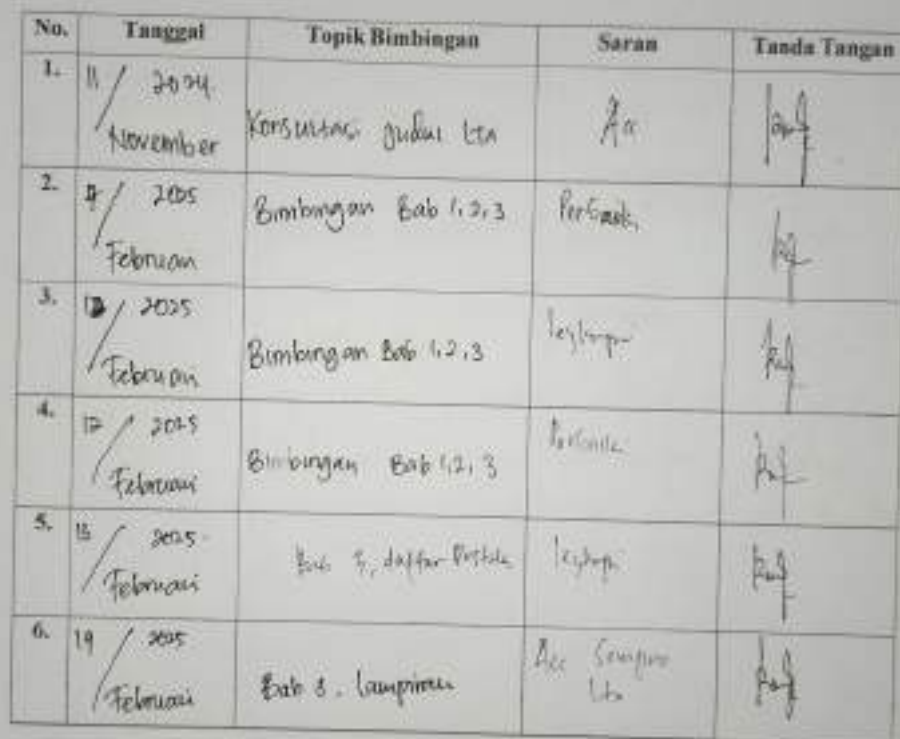 No. Tanggal Topik Bimbingan Saran Tanda Tangan
1. 11 / 2024 November Konsultasi judul LTA Acc
2. / 2025 Februari Bimbingan Bab 1,2,3 Perbaiki
3. / 2025 Februari Bimbingan Bab 1,2,3 lengkapi
4. 12 / 2025 Februari Bimbingan Bab 1,2,3 Perbaiki
5. 13 / 2025 Februari Bab 3, daftar Pustaka lengkapi
6. 19 / 2025 Februari Bab 3. lampiran Acc Sempro LTA